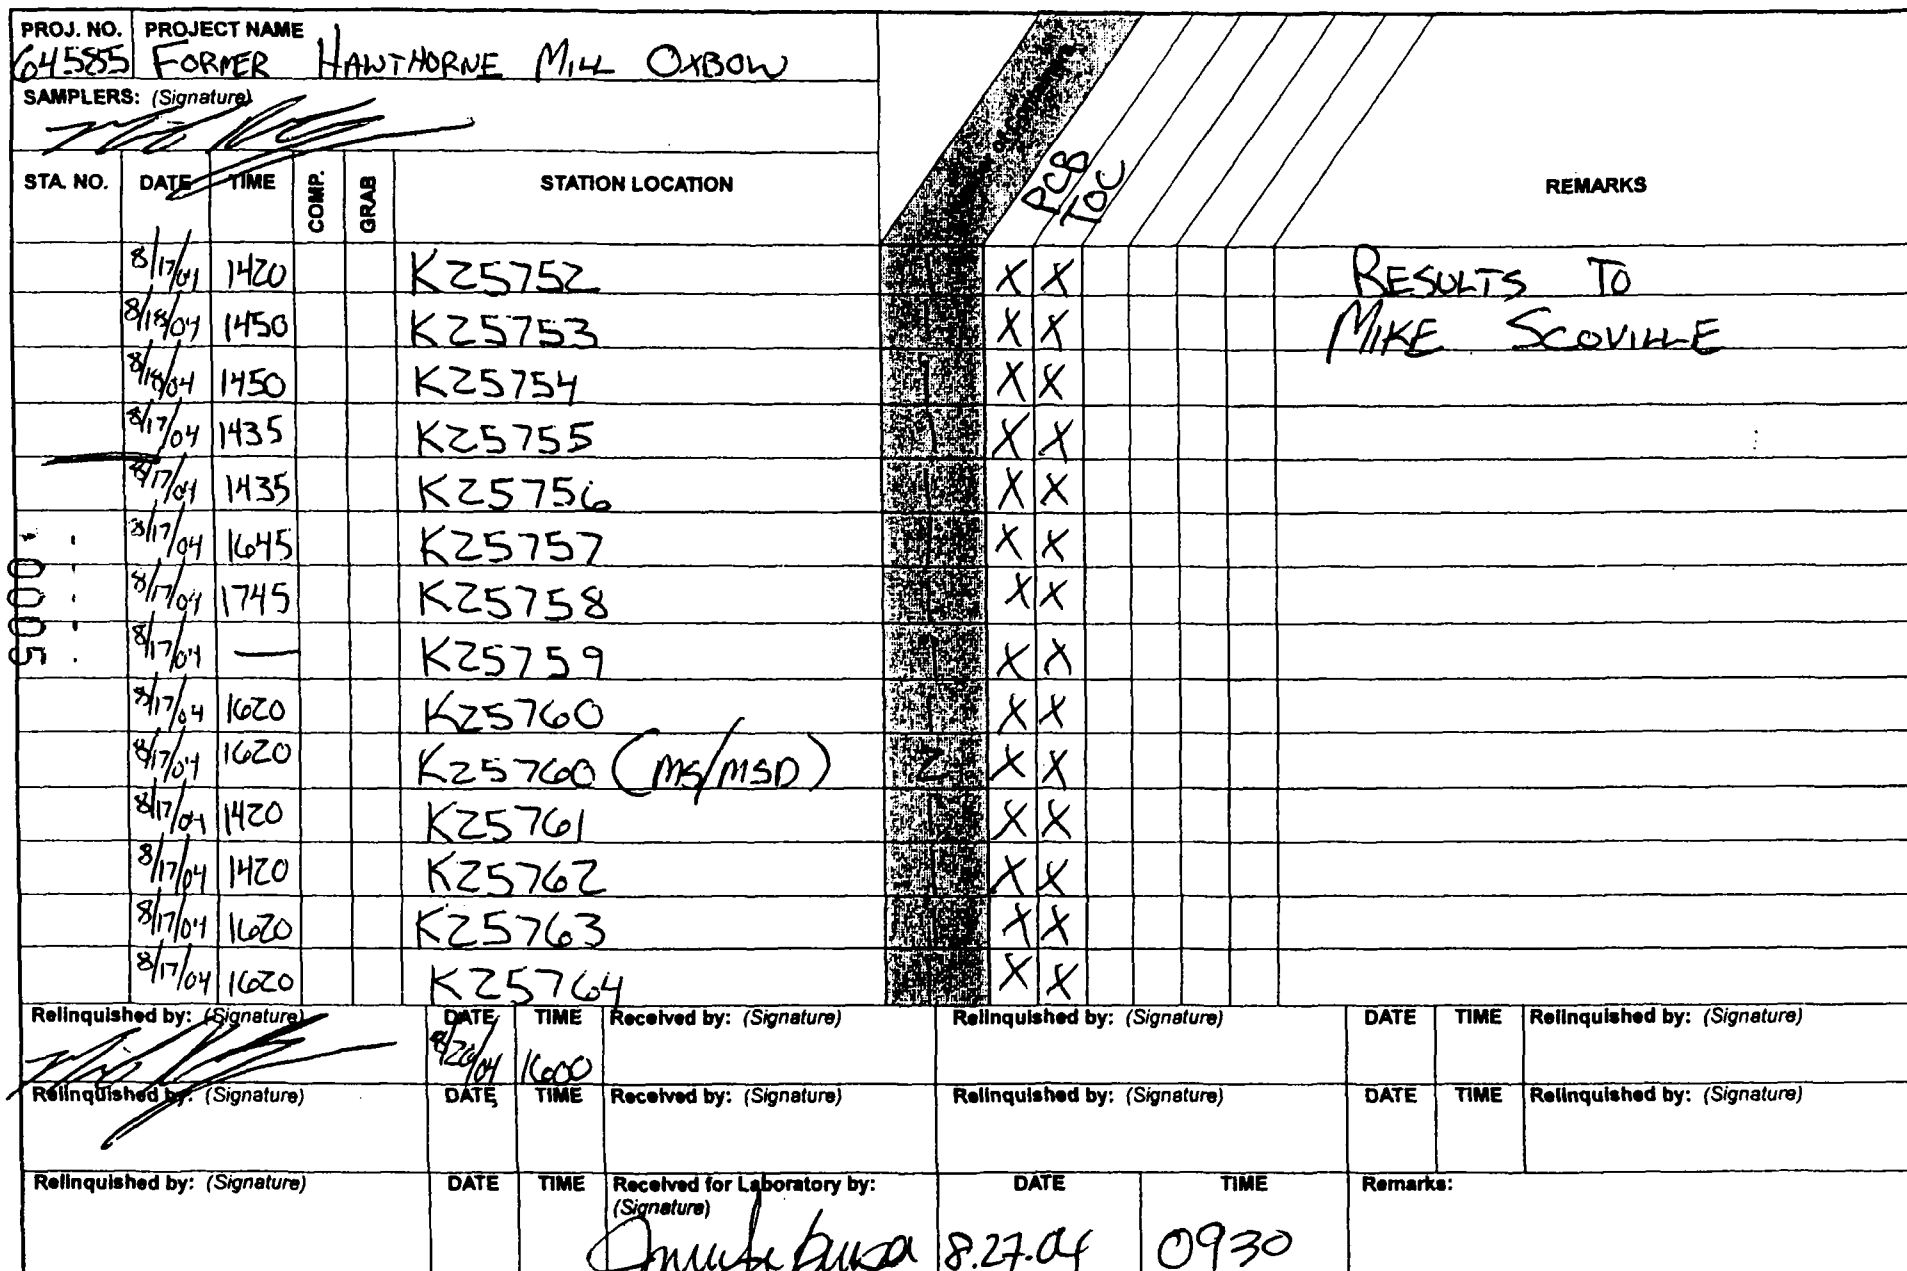 PROJ. NO. PROJECT NAME
64585 FORMER HAWTHORNE MILL OXBOW
SAMPLERS: (Signature)
PCB
TOC
STA. NO. DATE TIME COMP. GRAB STATION LOCATION REMARKS
8/17/04 1420 KZ5752 X X RESULTS TO
8/18/04 1450 KZ5753 X X MIKE SCOVILLE
8/18/04 1450 KZ5754 X X
8/17/04 1435 KZ5755 X X
8/17/04 1435 KZ5756 X X
8/17/04 1645 KZ5757 X X
8/17/04 1745 KZ5758 X X
8/17/04 — KZ5759 X X
8/17/04 1620 KZ5760 X X
8/17/04 1620 KZ5760 (MS/MSD) 2 X X
8/17/04 1420 KZ5761 X X
8/17/04 1420 KZ5762 X X
8/17/04 1620 KZ5763 X X
8/17/04 1620 KZ5764 X X
0005
Relinquished by: (Signature) DATE TIME Received by: (Signature) Relinquished by: (Signature) DATE TIME Relinquished by: (Signature)
1600
Relinquished by: (Signature) DATE TIME Received by: (Signature) Relinquished by: (Signature) DATE TIME Relinquished by: (Signature)
Relinquished by: (Signature) DATE TIME Received for Laboratory by: DATE TIME Remarks:
(Signature)
8.27.04 0930